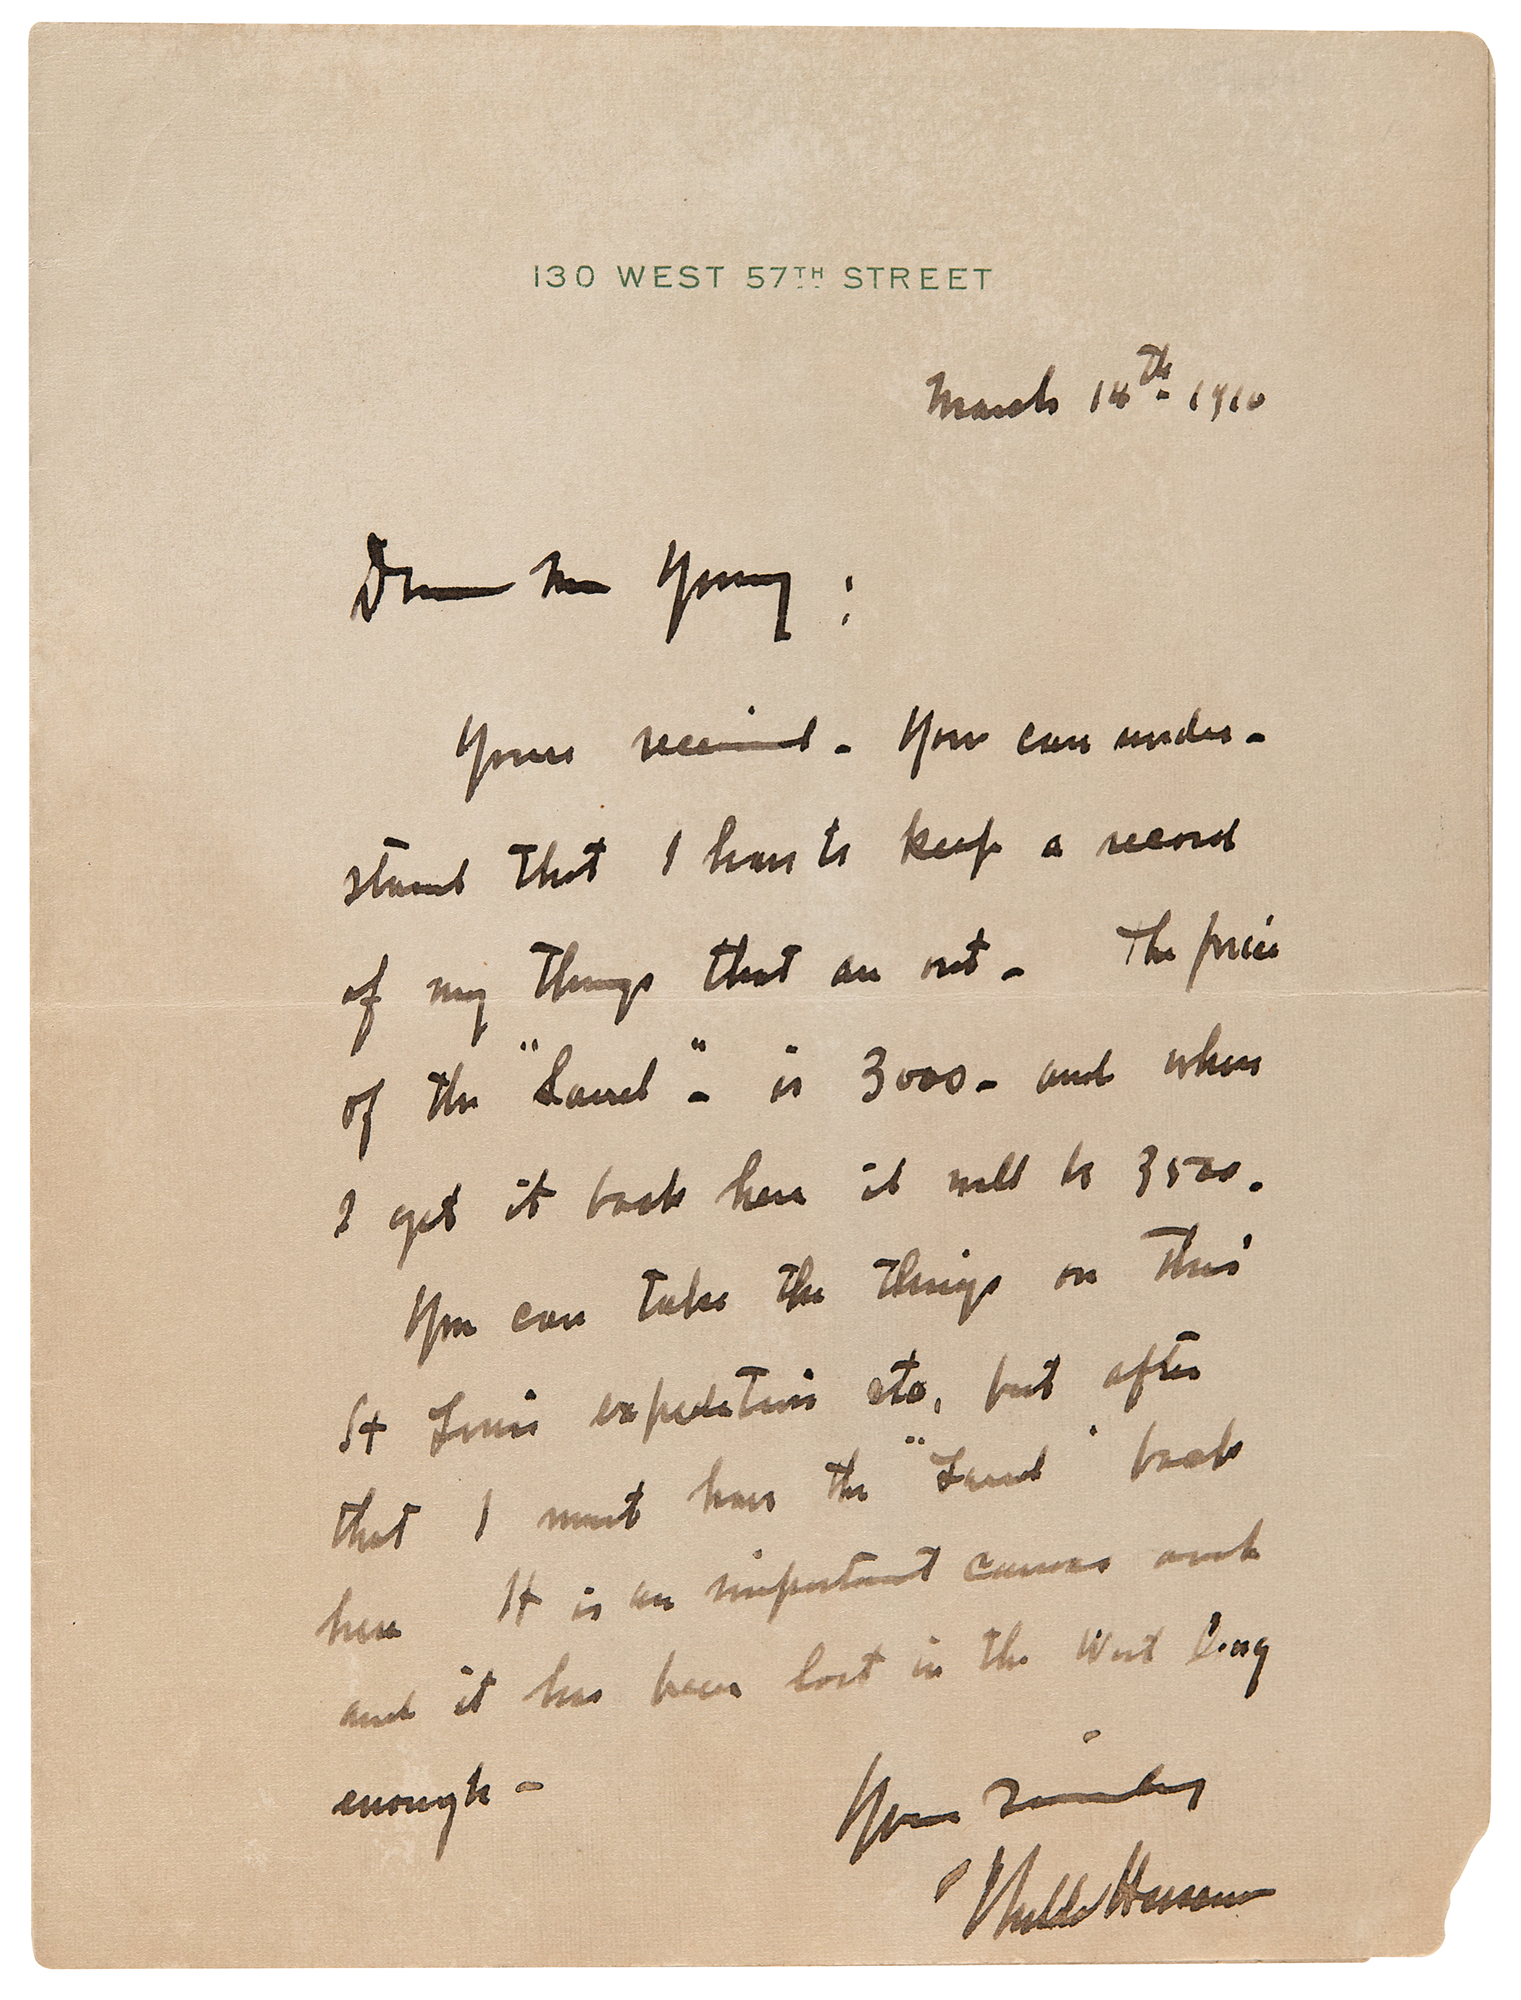 130 WEST 57TH STREET
March 18th - 1910
Dear Mr Young :
Yours received - You can under-
stand that I have to keep a record
of my things that are out - The price
of the "Laurel" - is 3000 - and when
I get it back here it will be 3500.
You can take the things on this
St Louis expedition etc, but after
that I must have the "Laurel" back
here It is an important canvas and
and it has been lost in the West long
enough -
Yours Sincerely
Childe Hassam